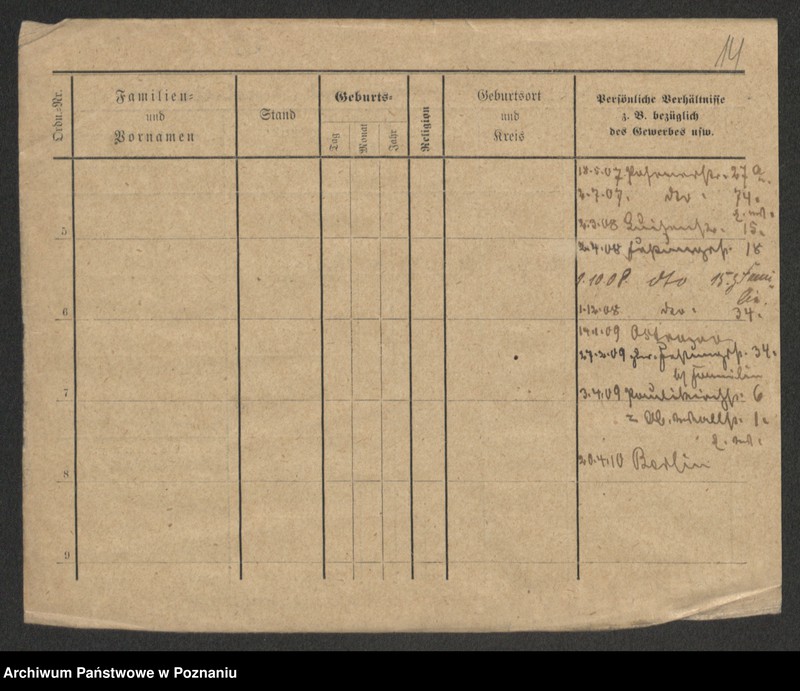 14
Ordn.-Nr.
Familien-
und
Vornamen
Stand
Geburts-
Tag
Monat
Jahr
Religion
Geburtsort
und
Kreis
Persönliche Verhältnisse
z. B. bezüglich
des Gewerbes usw.
18.5.07 Posenerstr. 27
2.7.07. dto. 74.
5
2.3.08 Luisenstr. 15.
2.4.08 18
9.10.08. dto 15.
6
1.12.08 dto. 34.
19.1.09 Ostrowo
27.2.09 34.
b/ Familie
7
3.4.09 Paulikirchstr. 6
1.
8
20.4.10 Berlin
9
Archiwum Państwowe w Poznaniu